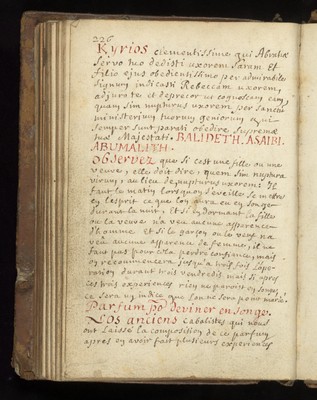 226
Kyrios clementissime qui Abrahæ
servo tuo dedisti uxorem saram Et
filio ejus obedientissimo per admirabile
signum indicasti Rebeccam uxorem,
adjuro te et deprecor ut cognoscam eam
quam sim nupturus uxorem per
ministerium tuorum geniorum qui
semper sunt parati obedire supremæ
tuæ Majestati. BALIDETH. ASAIBI.
ABUMALITH.
Observez que si c'est une fille ou une
veuve, elle doit dire, quem sim nuptura
virum, au lieu de nupturus uxorem: Il
faut le matin lorsqu'on s'eveille se mettre
en l'esprit ce que l'on aura eu en songe
durant la nuit, Et si en dormant la fille
ou la veuve n'a vëu aucune apparence
d'homme et si le garçon ou le veuf n'a
vëu aucune apparence de femme, il ne
faut pas pour cela perdre confiance, mais
on recommencera jusqu'a trois fois l'ope-
ration durant trois vendredis mais si apres
ces trois experiences rien ne paroit en songe,
ce sera un indice que l'on ne sera point marié.
Parfum pr. deviner en songe.
Les anciens cabalistes qui nous
ont laissé la composition de ce parfum
apres en avoir fait plusieurs experiences